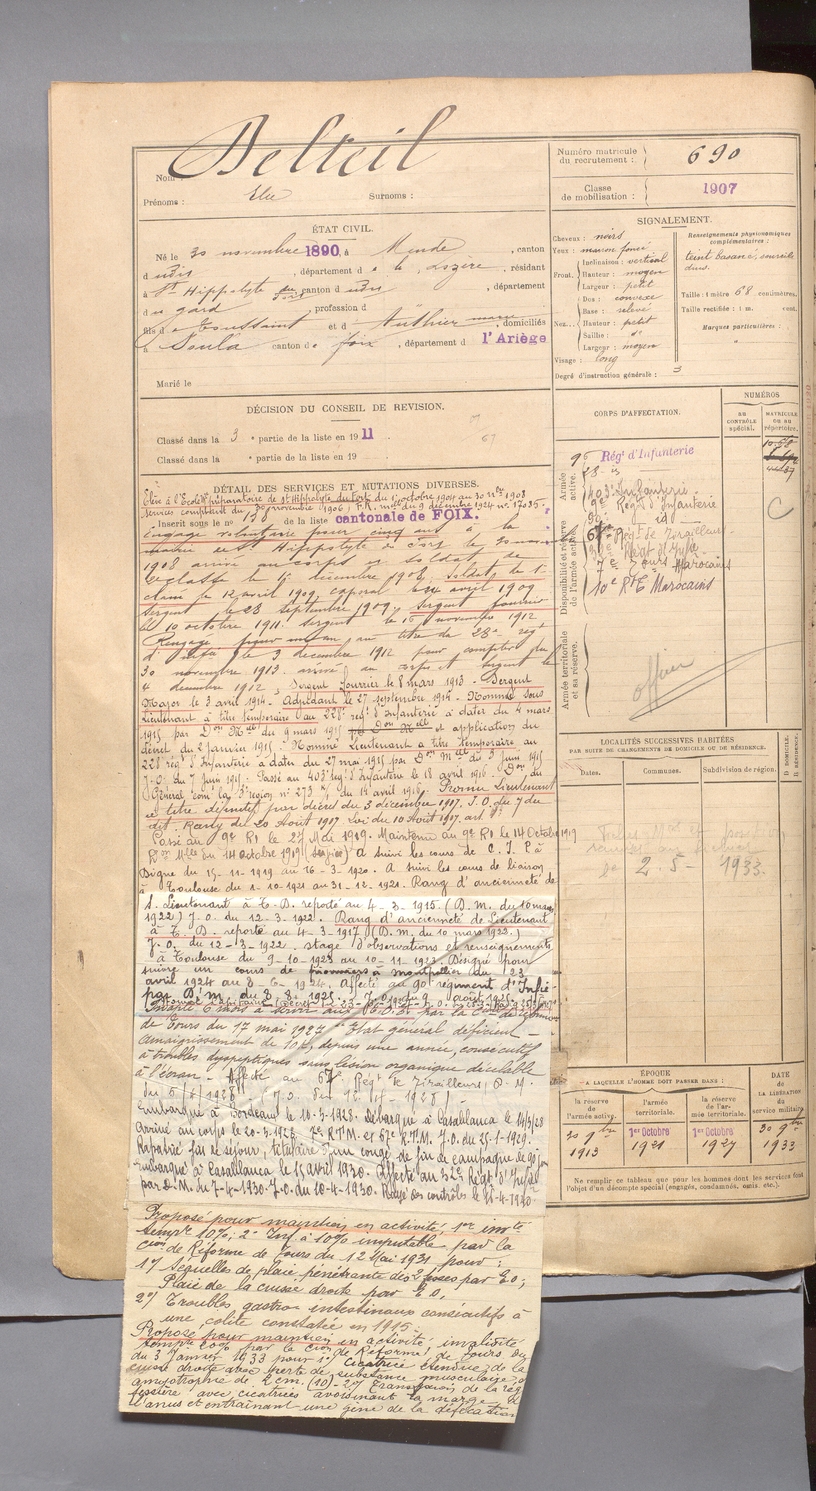 Nom : Delteil
Prénoms : Elie Surnoms :
Numéro matricule du recrutement : 690
Classe de mobilisation : 1907
ÉTAT CIVIL.
Né le 30 novembre 1890, à Mende, canton
d udis, département de la Lozère, résidant
à St Hippolyte du Fort canton d udis, département
du gard, profession d
fils de Toussaint et d Authier marie, domiciliés
à Soula canton de foix, département d l'Ariège
Marié le
SIGNALEMENT.
Cheveux : noirs
Yeux : marron foncé
Front. Inclinaison : vertical
Hauteur : moyen
Largeur : petit
Nez. Dos : convexe
Base : relevé
Hauteur : petit
Saillie : do
Largeur : moyen
Visage : long
Degré d'instruction générale : 3
Renseignements physionomiques complémentaires :
teint basané, sourcils
durs.
Taille : 1 mètre 68 centimètres.
Taille rectifiée : 1 m. cent.
Marques particulières :
"
DÉCISION DU CONSEIL DE REVISION.
Classé dans la 3e partie de la liste en 1911
Classé dans la e partie de la liste en 19
67
CORPS D'AFFECTATION.
NUMÉROS
AU CONTRÔLE spécial.
MATRICULE OU AU répertoire.
Armée active.
9e Régt d'Infanterie
28e id
403e Infanterie
9e Régt d'Infanterie
90e id
Disponibilité et réserve de l'armée active.
67e Régt de Tirailleurs
32e Régt d'Infie
7e Tirrs Marocains
10e Rt Marocains
Armée territoriale et sa réserve.
officier
DÉTAIL DES SERVICES ET MUTATIONS DIVERSES.
Elève à l'Ecole Mre préparatoire de St Hippolyte du Fort du 1er octobre 1904 au 30 9bre 1908
services comptant du 30 novembre 1906
Inscrit sous le no 198 de la liste cantonale de FOIX.
Engagé volontaire pour cinq ans à la
mairie de St Hippolyte du Fort le 30 novembre
1908 arrivé au corps et soldat de
2e classe le 1er décembre 1908, Soldat de 1e
classe le 12 avril 1909, caporal le 14 avril 1909
Sergent le 23 septembre 1909, Sergent fourrier
le 10 octobre 1911. Sergent le 15 novembre 1912
Rengagé pour un an au titre du 28e régt
d'infie le 3 décembre 1912 pour compter du
30 novembre 1913. arrivé au corps et sergent le
4 décembre 1912, Sergent fourrier le 8 mars 1913 - Sergent
Major le 3 avril 1914 - Adjudant le 27 septembre 1914 - Nommé sous
Lieutenant à titre temporaire au 228e régt d'Infanterie à dater du 4 mars
1915 par Don Melle du 9 mars 1915 et application du
décret du 2 janvier 1915 - Nommé Lieutenant à titre temporaire au
228e régt d'Infanterie à dater du 27 mai 1915 par Don Melle du 3 juin 1915
J.O. du 7 juin 1915. Passé au 403e régt d'Infanterie le 18 avril 1916. Don du
Général comt la 3e région no 273 du 14 avril 1916. Promu Lieutenant
à titre définitif par décret du 3 décembre 1917, J.O. du 7 du
dit. Rang du 20 Août 1917 Loi du 10 Août 1917, art.
Passé au 9e RI le 27 Mai 1919. Maintenu au 9e RI le 14 Octobre 1919
Don Melle du 14 Octobre 1919. A suivi les cours de C.I.P. à
Digne du 15-11-1919 au 16-3-1920. A suivi les cours de liaison
à Toulouse du 1-10-1921 au 31-12-1921. Rang d'ancienneté de
S. Lieutenant à T.D. reporté au 4-3-1915 (D.M. du 10 mars
1922) J.O. du 12-3-1922. Rang d'ancienneté de Lieutenant
à T.D. reporté au 4-3-1917 (D.M. du 10 mars 1922.)
J.O. du 12-3-1922. stage d'observations et renseignements
à Toulouse du 9-10-1923 au 10-11-1923 Désigné pour
suivre un cours de pionniers à montpellier du 23
avril 1924 au 8-6-1924. Affecté au 90e régiment d'Infie
par D.M. du 8-8-1925. J.O. du 9 août 1925.
de Tours du 17 mai 1927 : "Etat général déficient -
amaigrissement de 10 k, depuis une année, consécutif
à troubles dyspeptiques sans lésion organique décelable
à l'écran - Affecté au 67e Régt de Tirailleurs D.M.
Embarqué à Bordeaux le 10-3-1928. Débarqué à Casablanca le 14/3/28
Arrivé au corps le 20-3-1928. 7e R.T.M. et 67e R.T.M. J.O. du 25-1-1929.
Rapatrié fin de séjour, titulaire d'un congé de fin de campagne de 90 jours
embarqué à Casablanca le 15 avril 1930. Affecté au 32e Régt d'Infie
par D.M. du 7-4-1930. J.O. du 10-4-1930. Rayé des contrôles le 15-4-1930.
Proposé pour maintien en activité, 1o invté
tempre 10%; 2o Inf. à 10% imputable par la
Cion de Réforme de Tours du 12 Mai 1931 pour :
1o) Séquelles de plaie pénétrante des 2 fesses par E.O;
Plaie de la cuisse droite par E.O.
2o) Troubles gastro intestinaux consécutifs à
une colite constatée en 1915.
Proposé pour maintien en activité invalidité
tempre 20% par la Cion de Réforme de Tours du
du 3 Janvier 1933 pour 1o Cicatrice étendue de la
cuisse droite avec perte de substance musculaire,
amyotrophie de 2 cm. (10) - 2o) Transfixion de la rég
fessière avec cicatrices avoisinant la marge de
l'anus et entraînant une gêne de la défécation
LOCALITÉS SUCCESSIVES HABITÉES
PAR SUITE DE CHANGEMENTS DE DOMICILE OU DE RÉSIDENCE.
Dates.
Communes.
Subdivision de région.
D. DOMICILE.
R. RÉSIDENCE.
le 2-5-1933.
ÉPOQUE
A LAQUELLE L'HOMME DOIT PASSER DANS :
la réserve de l'armée active.
l'armée territoriale.
la réserve de l'armée territoriale.
DATE de LA LIBÉRATION du service militaire.
30 9bre 1913
1er Octobre 1921
1er Octobre 1927
30 9bre 1933
Ne remplir ce tableau que pour les hommes dont les services font
l'objet d'un décompte spécial (engagés, condamnés, omis, etc.).